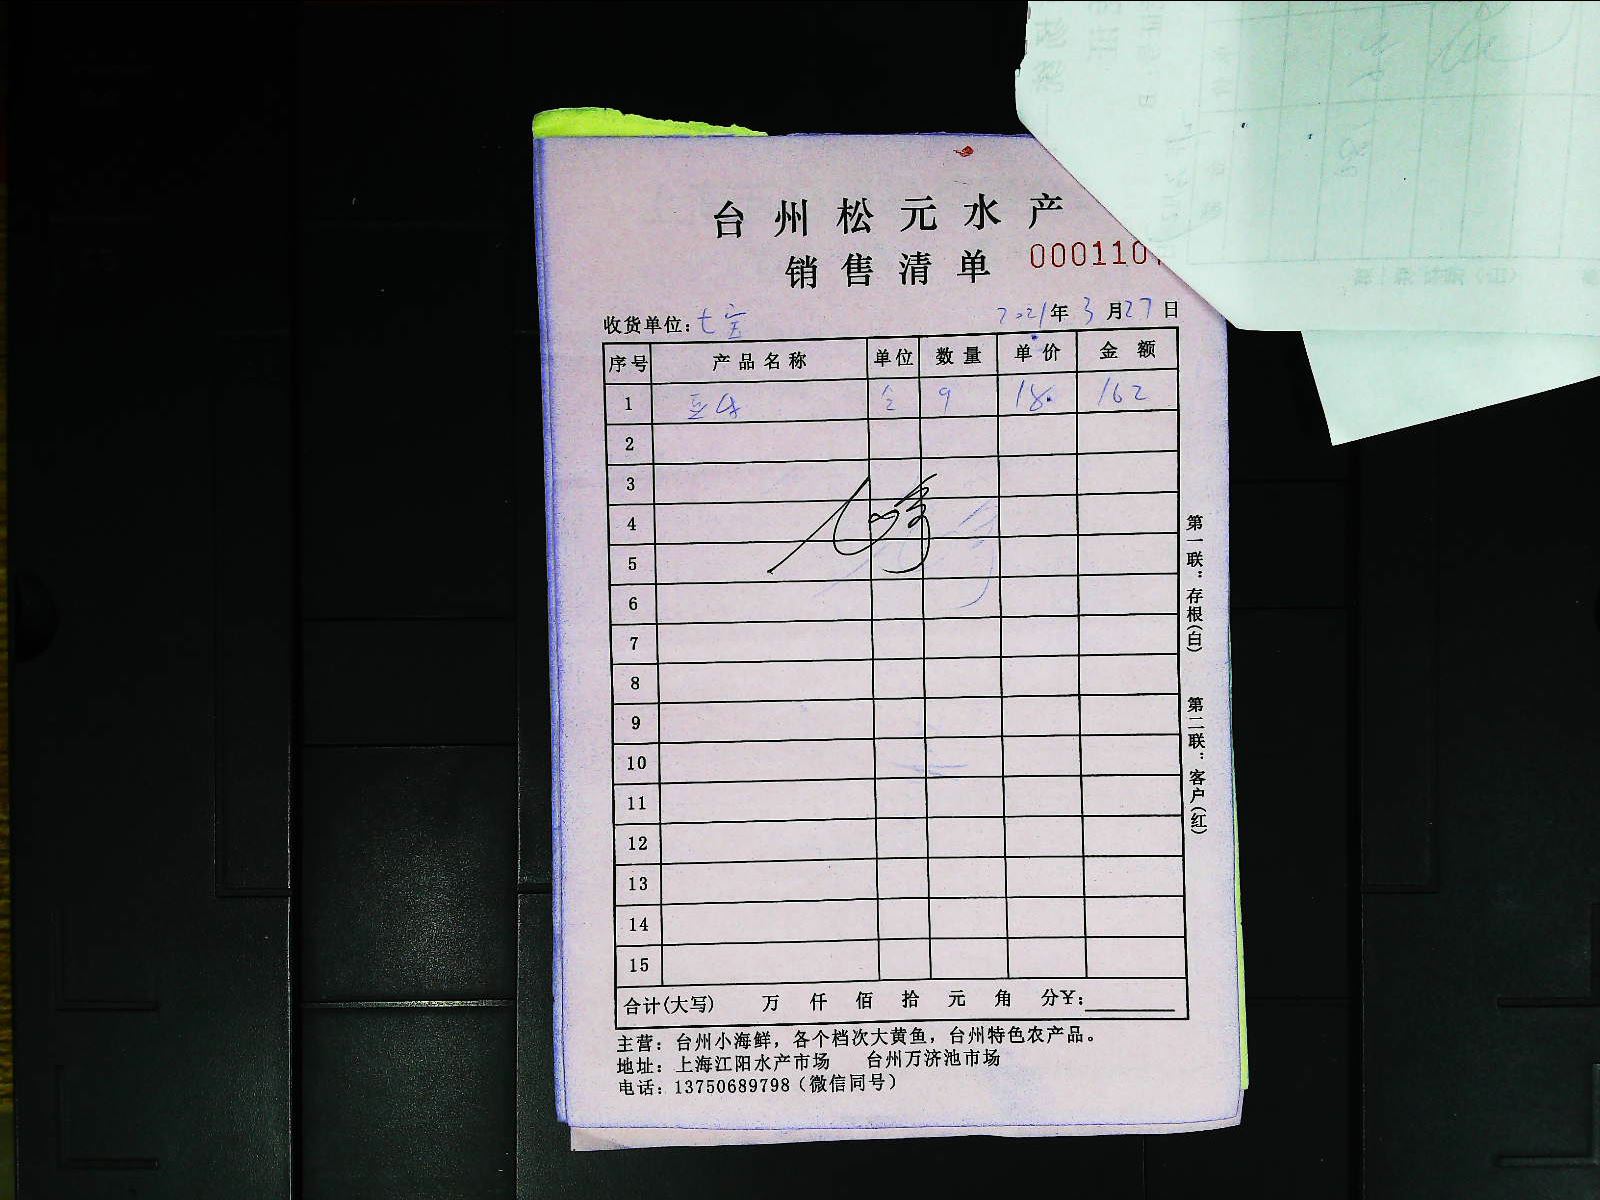 台州松元水产
销售清单 0001101
收货单位：七宝 2021年3月27日
序号 产品名称 单位 数量 单价 金额
1 9 18. 162
2
3
4
5
6
7
8
9
10
11
12
13
14
15
合计(大写) 万 仟 佰 拾 元 角 分¥：
主营：台州小海鲜，各个档次大黄鱼，台州特色农产品。
地址：上海江阳水产市场 台州万济池市场
电话：13750689798（微信同号）
第一联：存根(白)
第二联：客户(红)